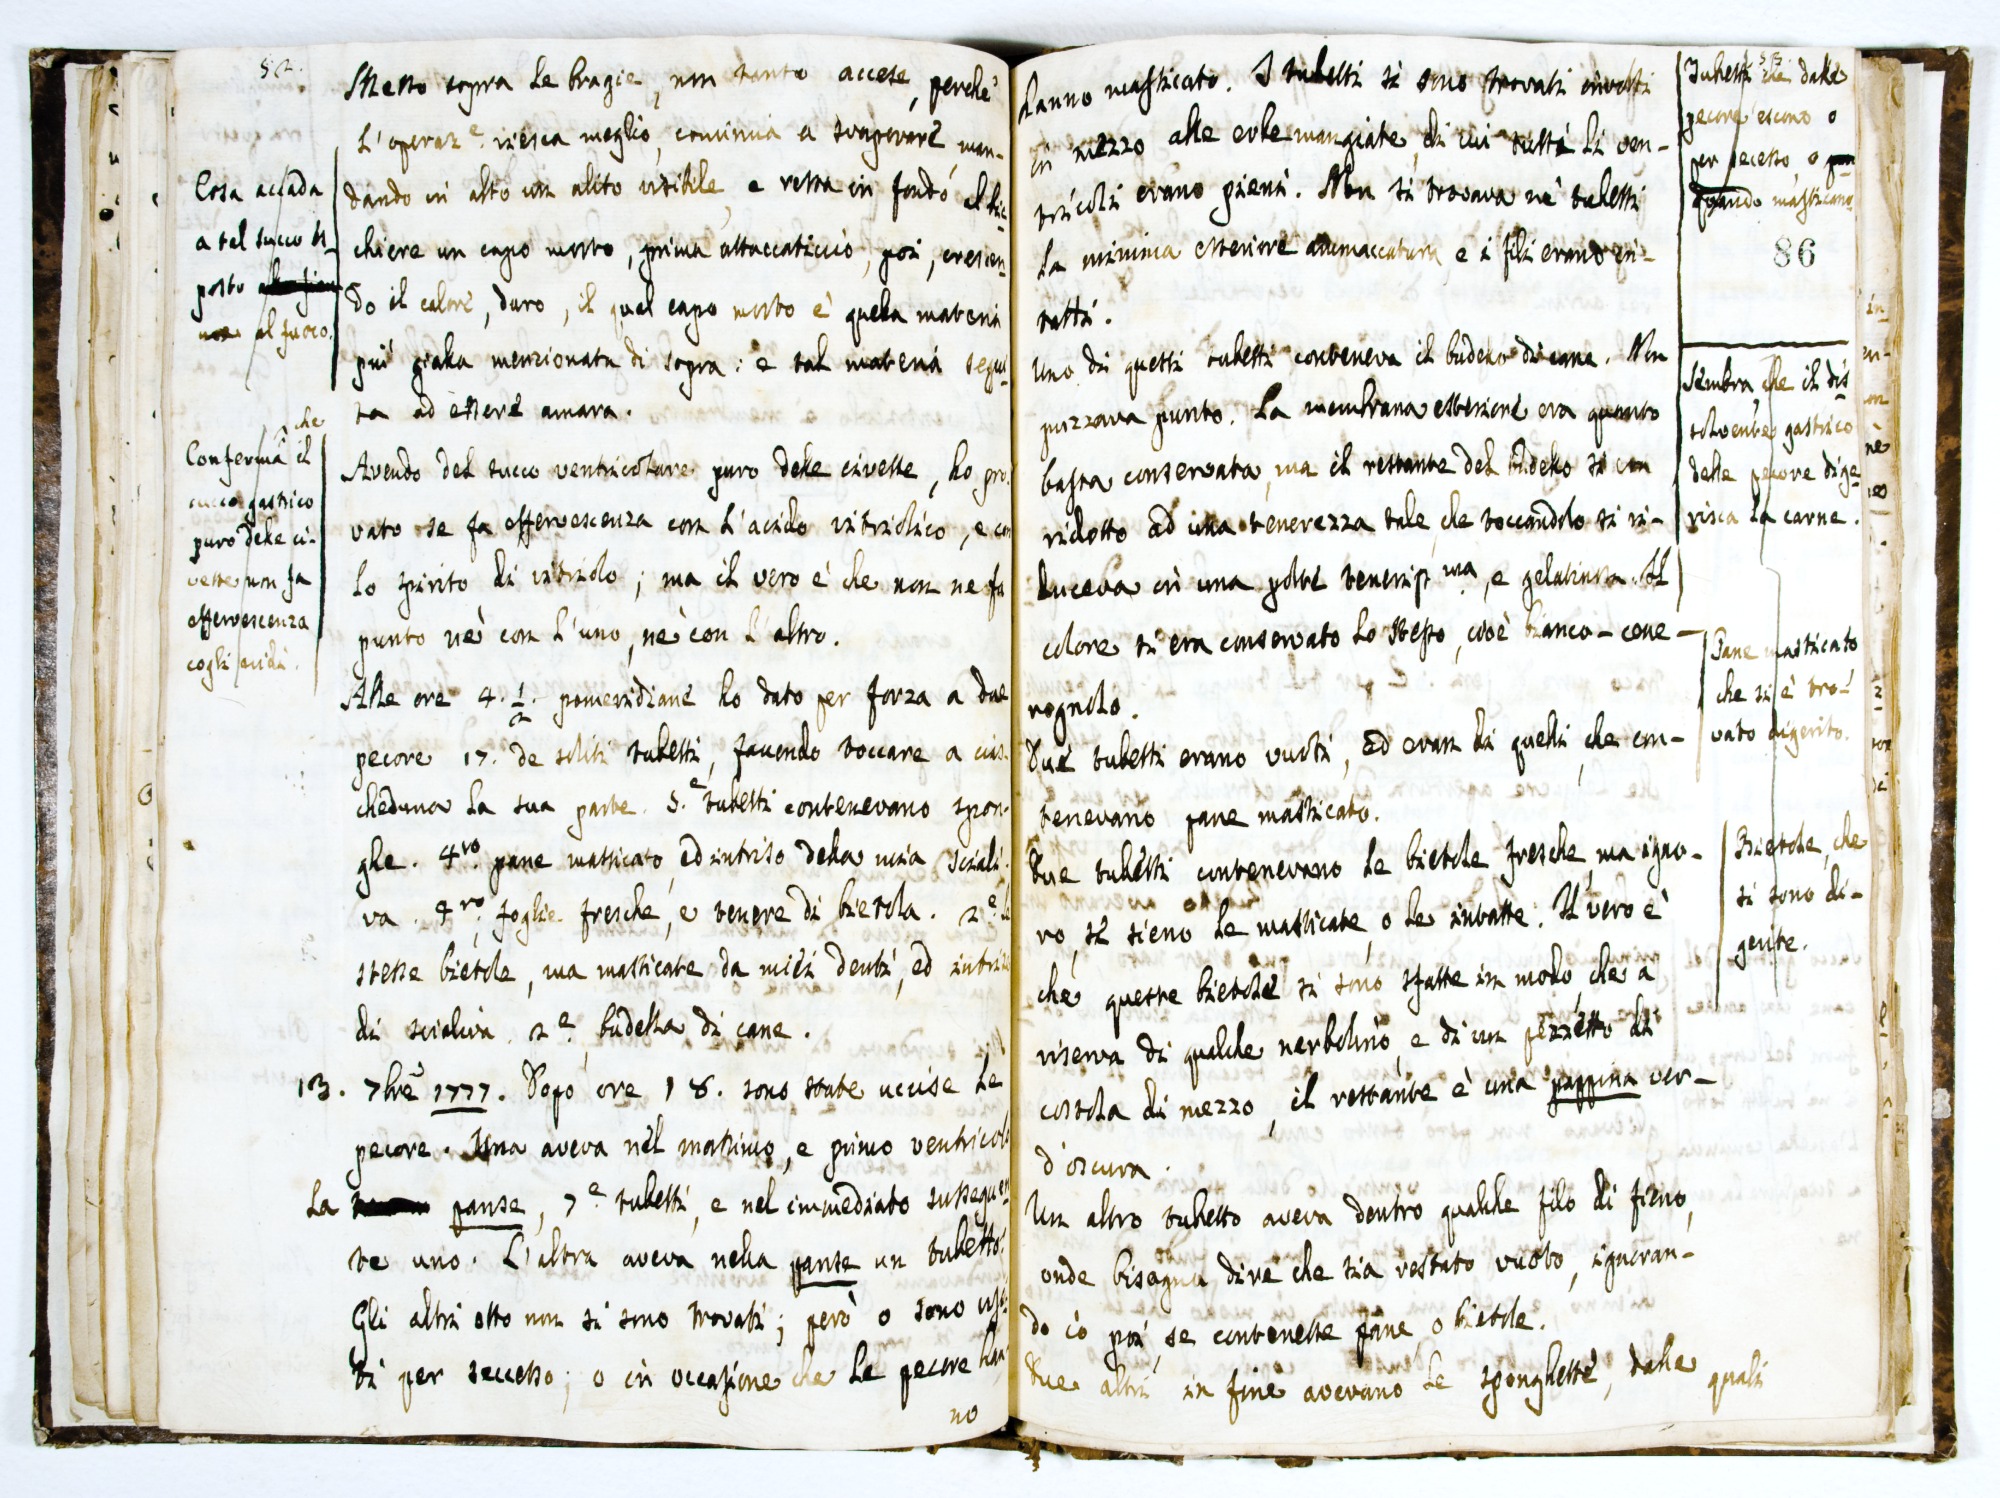 52.
Messo sopra le bragie, non tanto accese, perchè
l'operaz.e riesca meglio, continua a svaporare man-
dando in alto un alito visibile, e resta in fondo al bic
chiere un capo morto, prima attaccaticcio, poi, crescen
do il calore, duro, il qual capo morto è quella materia
più gialla menzionata di sopra: e tal materia segui
ta ad essere amara.
Avendo del succo ventricolare puro delle civette, ho pro
vato se fa effervescenza con l'acido vitriolico, e co
lo spirito di vitriolo; ma il vero è che non ne fa
punto nè con l'uno, nè con l'altro.
Alle ore 4. 1/2. pomeridiane ho dato per forza a due
pecore 17. de soliti tubetti, facendo toccare a cias
cheduna la sua parte. 5.e tubetti contenevano spon-
ghe. 4ro. pane masticato, ed intriso della mia sciali
va. 4ro. foglie fresche, e tenere di bietola. 2.e le
stesse bietole, ma masticate da miei denti, ed intrise
di scialiva. 2.e budella di cane.
13. 7bre 1777. Dopo ore 18. sono state uccise le
pecore. Una aveva nel massimo, e primo ventricolo
la panse, 7.e tubetti, e nel immediato susseguen
te uno. L'altra aveva nella panse un tubetto.
Gli altri otto non si sono trovati; però o sono usci
ti per secesso; o in occasione che le pecore han
no
Cosa accada
a tal succo s
posto
al fuoco.
Conferma che il
succo gastrico
puro delle ci-
vette non fa
effervescenza
cogli acidi.
53
hanno masticato. I tubetti si sono trovati involti
in mezzo alle erbe mangiate, di cui tutti li ven-
tricoli erano pieni. Non si trovava nè tubetti
la minima esteriore ammaccatura, e i fili erano in-
tatti.
Uno di questi tubetti conteneva il budello di cane. Non
puzzava punto. La membrana esteriore era quanto
basta conservata, ma il restante del budello si era
ridotto ad una tenerezza tale, che toccandolo si ri-
duceva in una polte teneriss.ma, e gelatinosa. Il
colore si era conservato lo stesso, cioè bianco-cene-
rognolo.
Due tubetti erano vuoti, ed eran di quelli, che con-
tenevano pane masticato.
Due tubetti contenevano le bietole fresche, ma igno-
ro, se sieno le masticate, o le intatte. Il vero è
che queste bietole si sono sfatte in modo che a
riserva di qualche nerbolino, e di un pezzetto di
costola di mezzo, il restante è una pappina ver-
d'oscura.
Un altro tubetto aveva dentro qualche filo di fieno,
onde bisogna dire che sia restato vuoto, ignoran-
do io poi, se contenesse pane, o bietole.
Due altri in fine avevano le sponghette, dalle quali
Tubetti che dalle
pecore escono o
per secesso, o
quando masticano
86
Sembra, che il dis
solvente gastrico
delle pecore dige
risca la carne.
Pane masticato
che si è tro-
vato digerito.
Bietole, che
si sono di-
gerite.